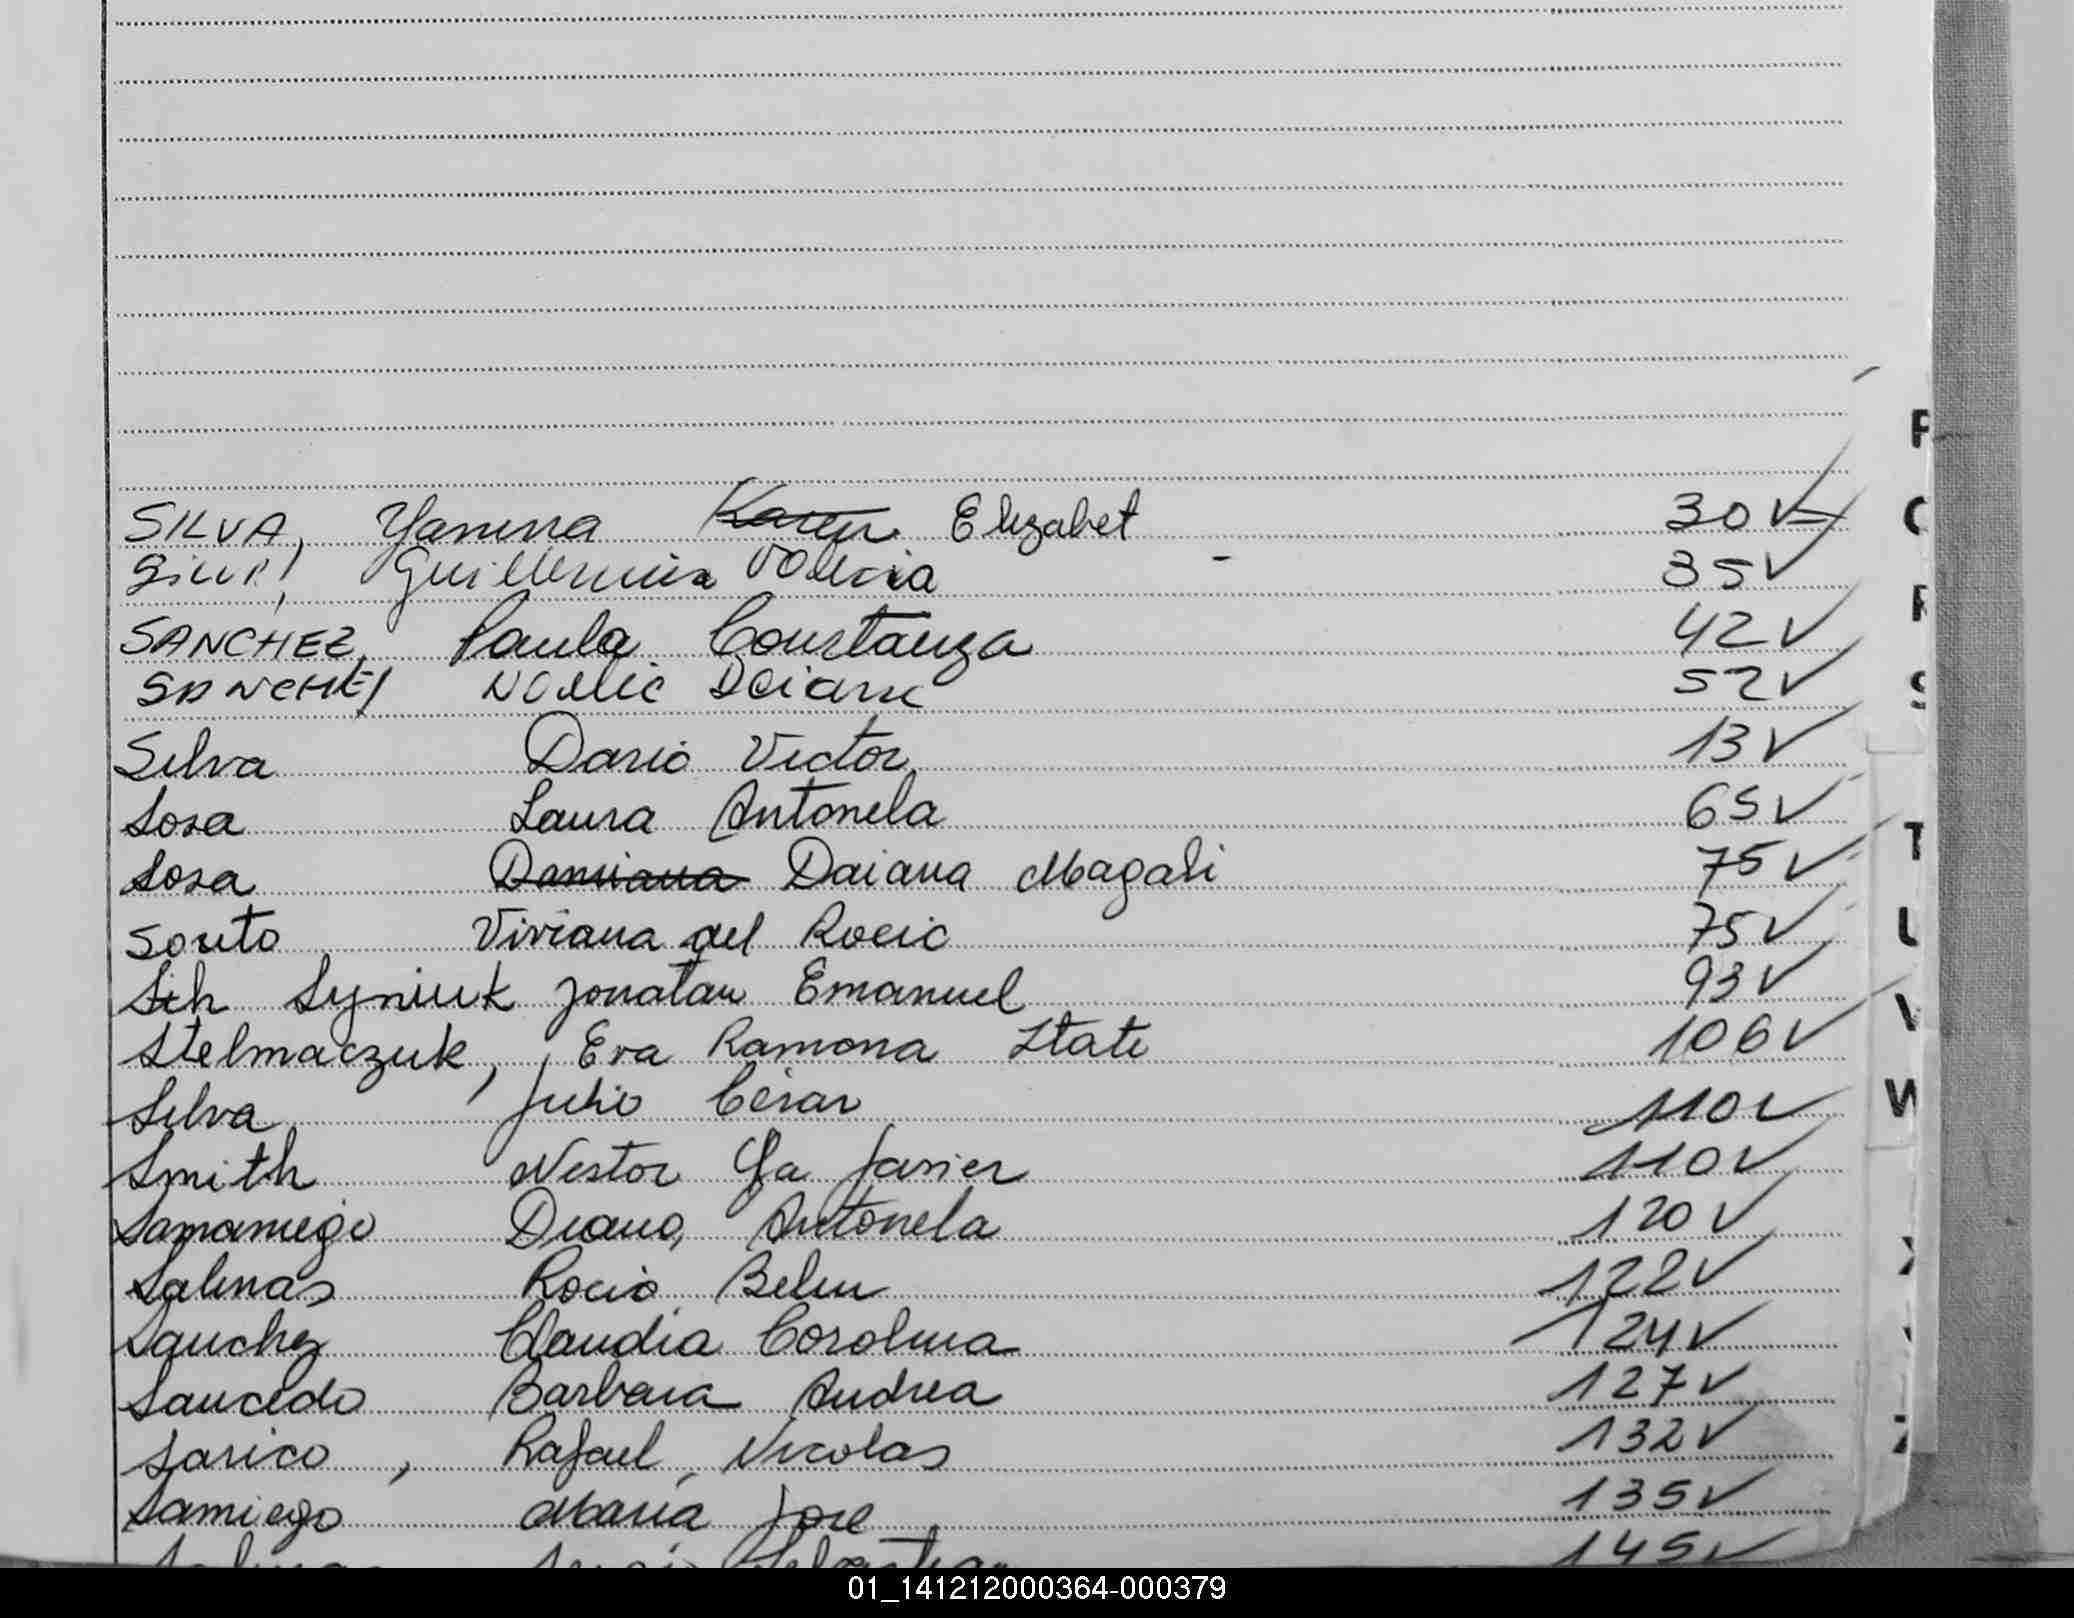 SILVA, Yanina Karen Elizabet 30 ✓
Guillermina Valeria 35 ✓
SANCHEZ, Paula Constanza 42 ✓
SANCHEZ Noelie Daiana 52 ✓
Silva Dario Victor 13 ✓
Sosa Laura Antonela 65 ✓
Sosa Damiana Daiana Magali 75 ✓
Souto Viviana del Rocio 75 ✓
Syniuk Jonatan Emanuel 93 ✓
Stelmaczuk, Eva Ramona Itati 106 ✓
Silva Julio César 110 ✓
Smith Nestor Ja Javier 110 ✓
Samaniego Diana, Antonela 120 ✓
Salinas Rocio Belen 122 ✓
Sanchez Claudia Carolina 124 ✓
Saucedo Barbara Andrea 127 ✓
Sarico, Rafael Nicolas 132 ✓
Samiego Maria Jose 135 ✓
Sebastian 145 ✓
P
R
S
T
U
V
W
01_141212000364-000379